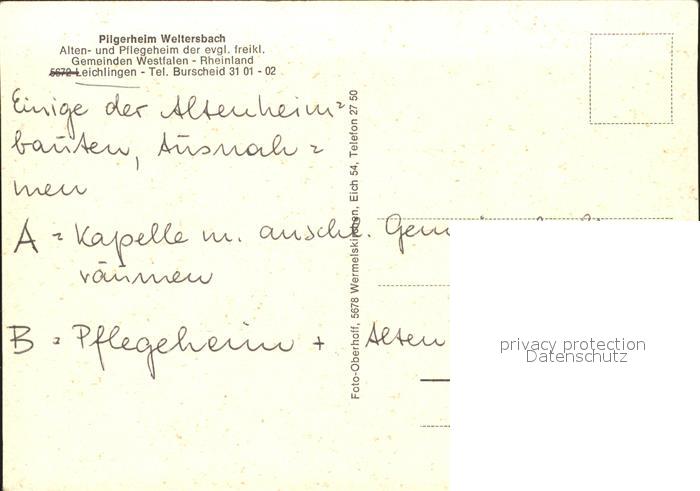 Pilgerheim Weltersbach
Alten- und Pflegeheim der evgl. freikl.
Gemeinden Westfalen - Rheinland
5672 Leichlingen - Tel. Burscheid 31 01 - 02
Einige der Altenheim=
bauten, Ausnah=
men
A = Kapelle m. anschl.
räumen
B = Pflegeheim + Alten
Foto-Oberhoff, 5678 Wermelskirchen, Eich 54, Telefon 27 50
privacy protection
Datenschutz